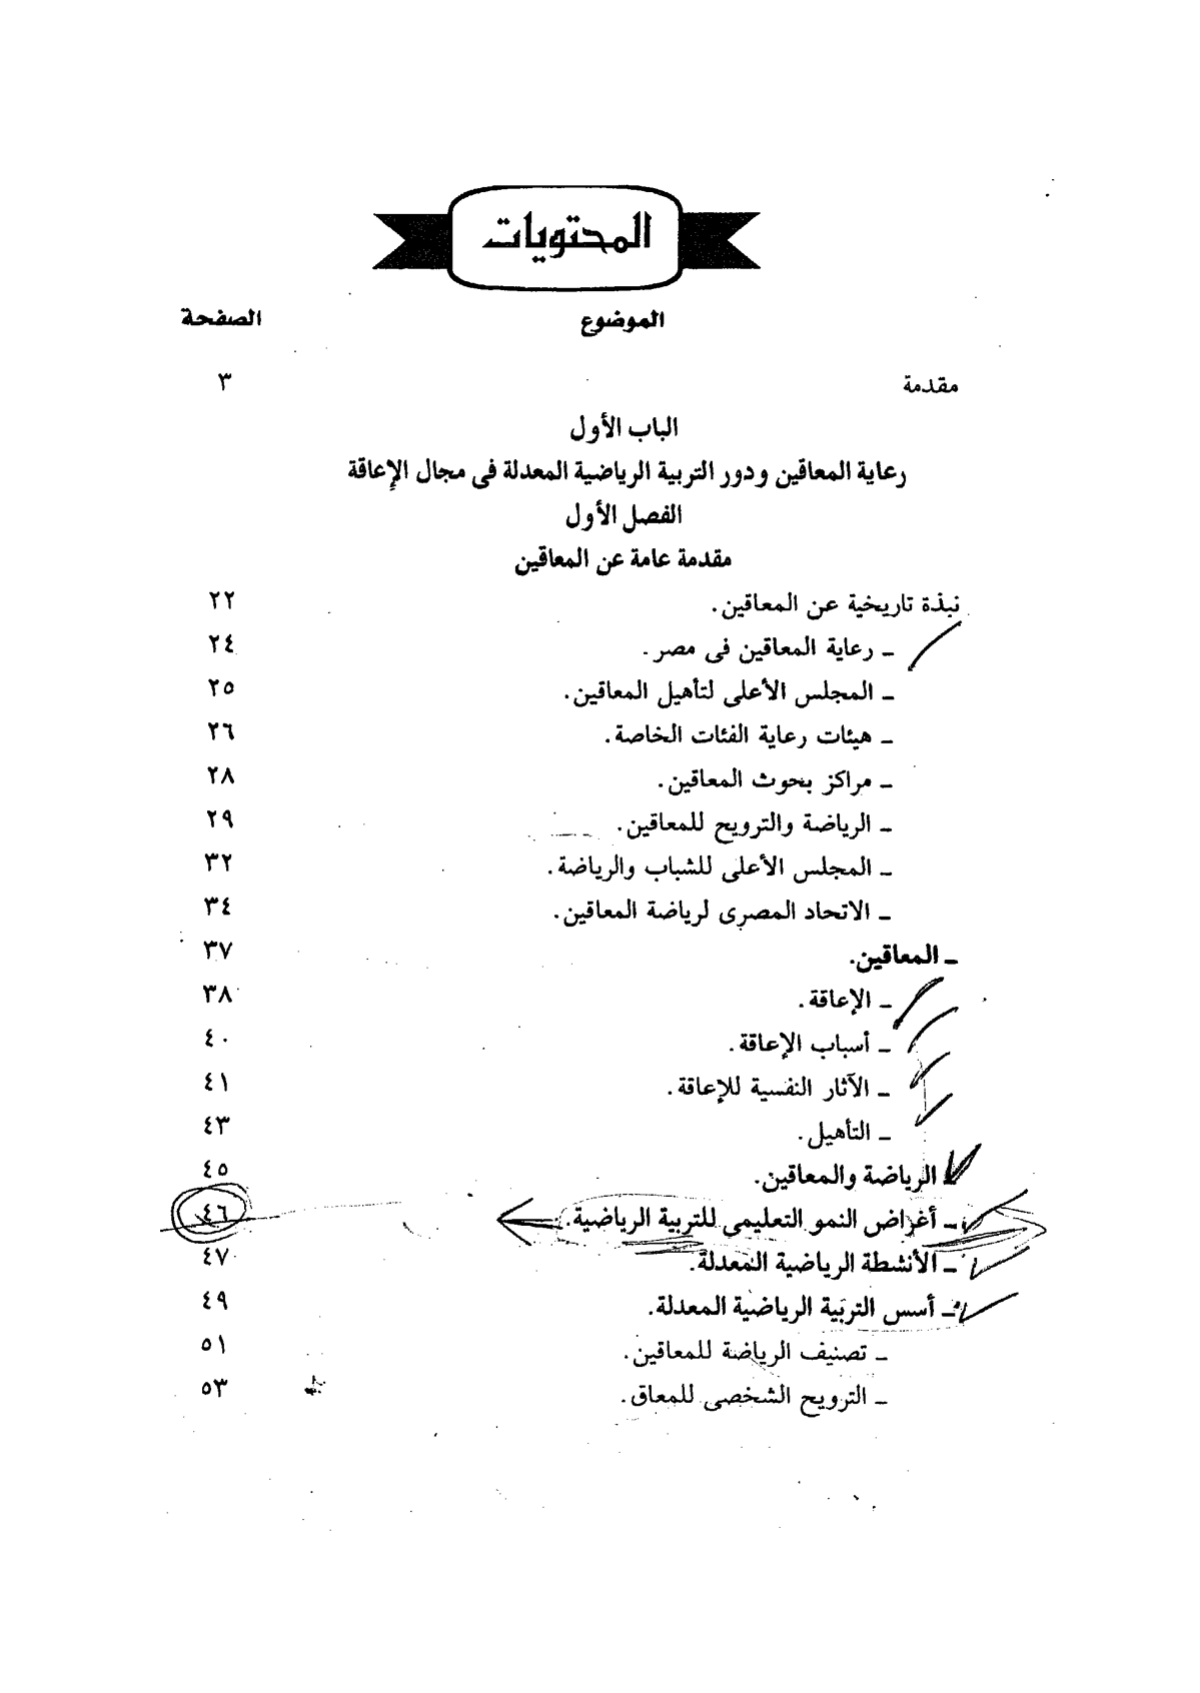 المحتويات
الموضوع الصفحة
مقدمة ٣
الباب الأول
رعاية المعاقين ودور التربية الرياضية المعدلة فى مجال الإعاقة
الفصل الأول
مقدمة عامة عن المعاقين
نبذة تاريخية عن المعاقين. ٢٢
ـ رعاية المعاقين فى مصر. ٢٤
ـ المجلس الأعلى لتأهيل المعاقين. ٢٥
ـ هيئات رعاية الفئات الخاصة. ٢٦
ـ مراكز بحوث المعاقين. ٢٨
ـ الرياضة والترويح للمعاقين. ٢٩
ـ المجلس الأعلى للشباب والرياضة. ٣٢
ـ الاتحاد المصرى لرياضة المعاقين. ٣٤
ـ المعاقين. ٣٧
ـ الإعاقة. ٣٨
ـ أسباب الإعاقة. ٤٠
ـ الآثار النفسية للإعاقة. ٤١
ـ التأهيل. ٤٣
ـ الرياضة والمعاقين. ٤٥
ـ أغراض النمو التعليمى للتربية الرياضية. ٤٦
ـ الأنشطة الرياضية المعدلة. ٤٧
ـ أسس التربية الرياضية المعدلة. ٤٩
ـ تصنيف الرياضة للمعاقين. ٥١
ـ الترويح الشخصى للمعاق. ٥٣